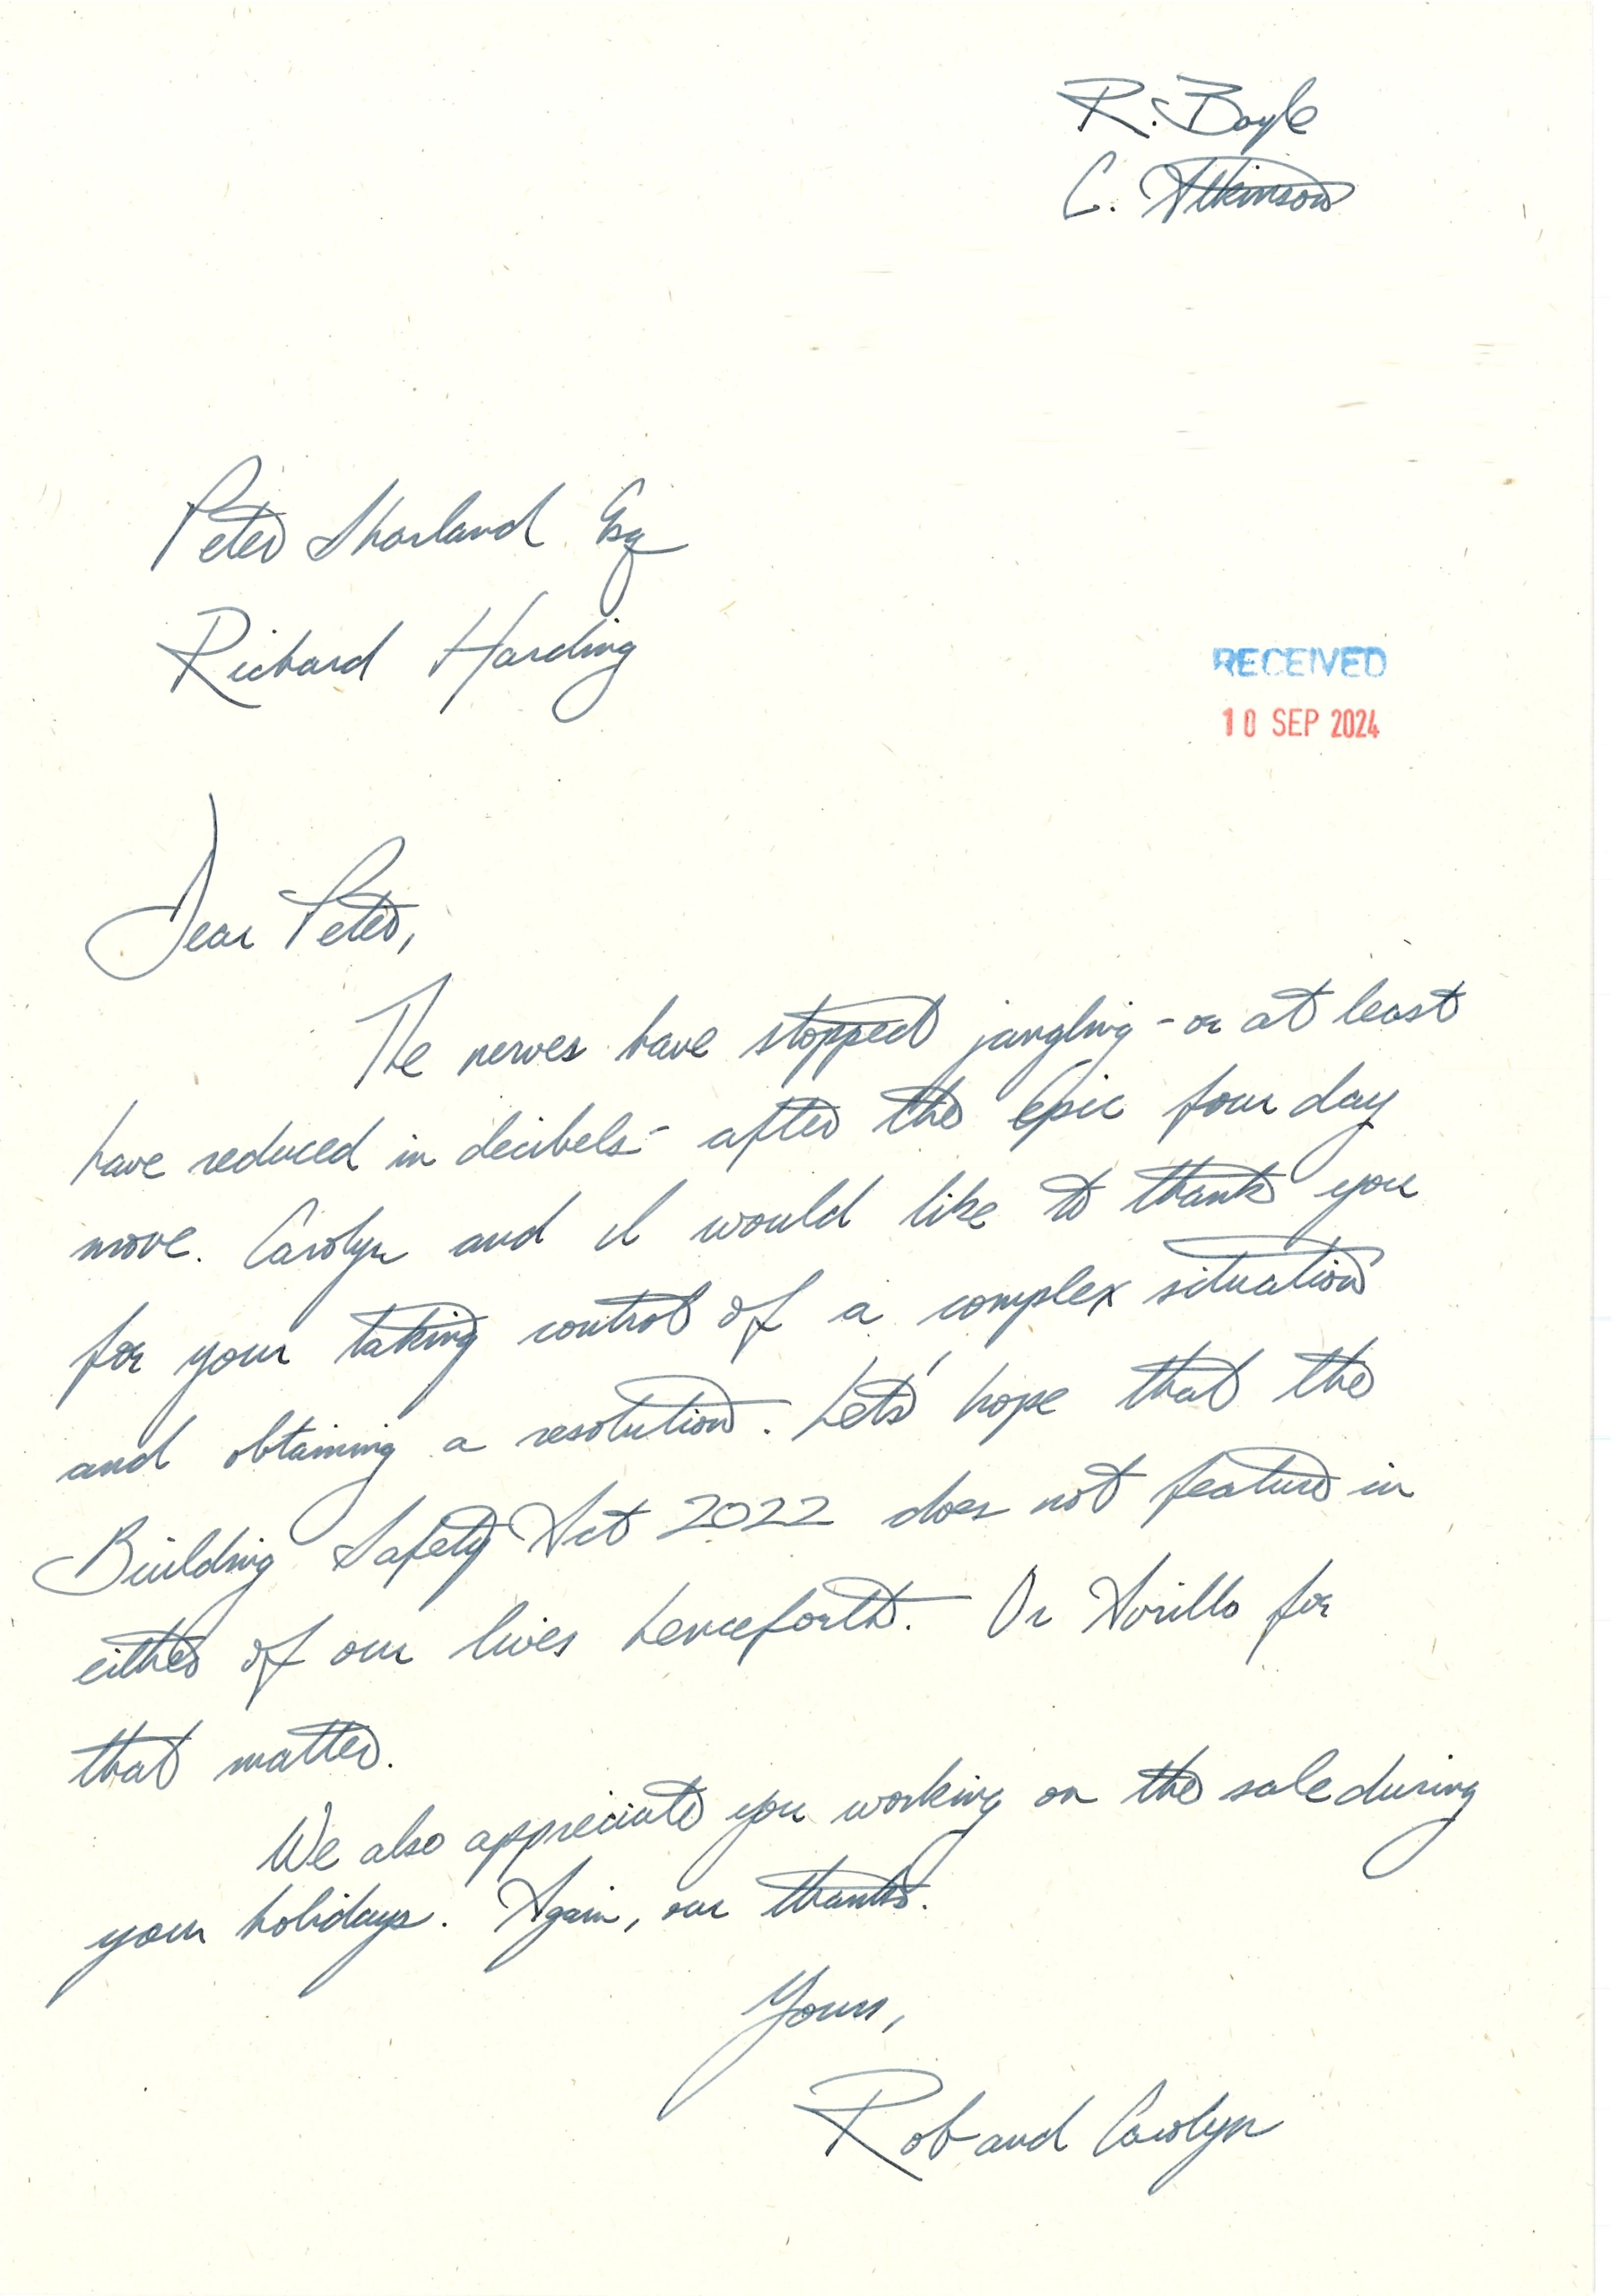 R. Boyle
C. Atkinson
Peter Shorland Esq
Richard Harding
RECEIVED
10 SEP 2024
Dear Peter,
The nerves have stopped jangling - or at least
have reduced in decibels - after the epic four day
move. Carolyn and I would like to thank you
for your taking control of a complex situation
and obtaining a resolution. Let's hope that the
Building Safety Act 2022 does not feature in
either of our lives henceforth. Or Avrillo for
that matter.
We also appreciate you working on the sale during
your holidays. Again, our thanks.
Yours,
Rob and Carolyn